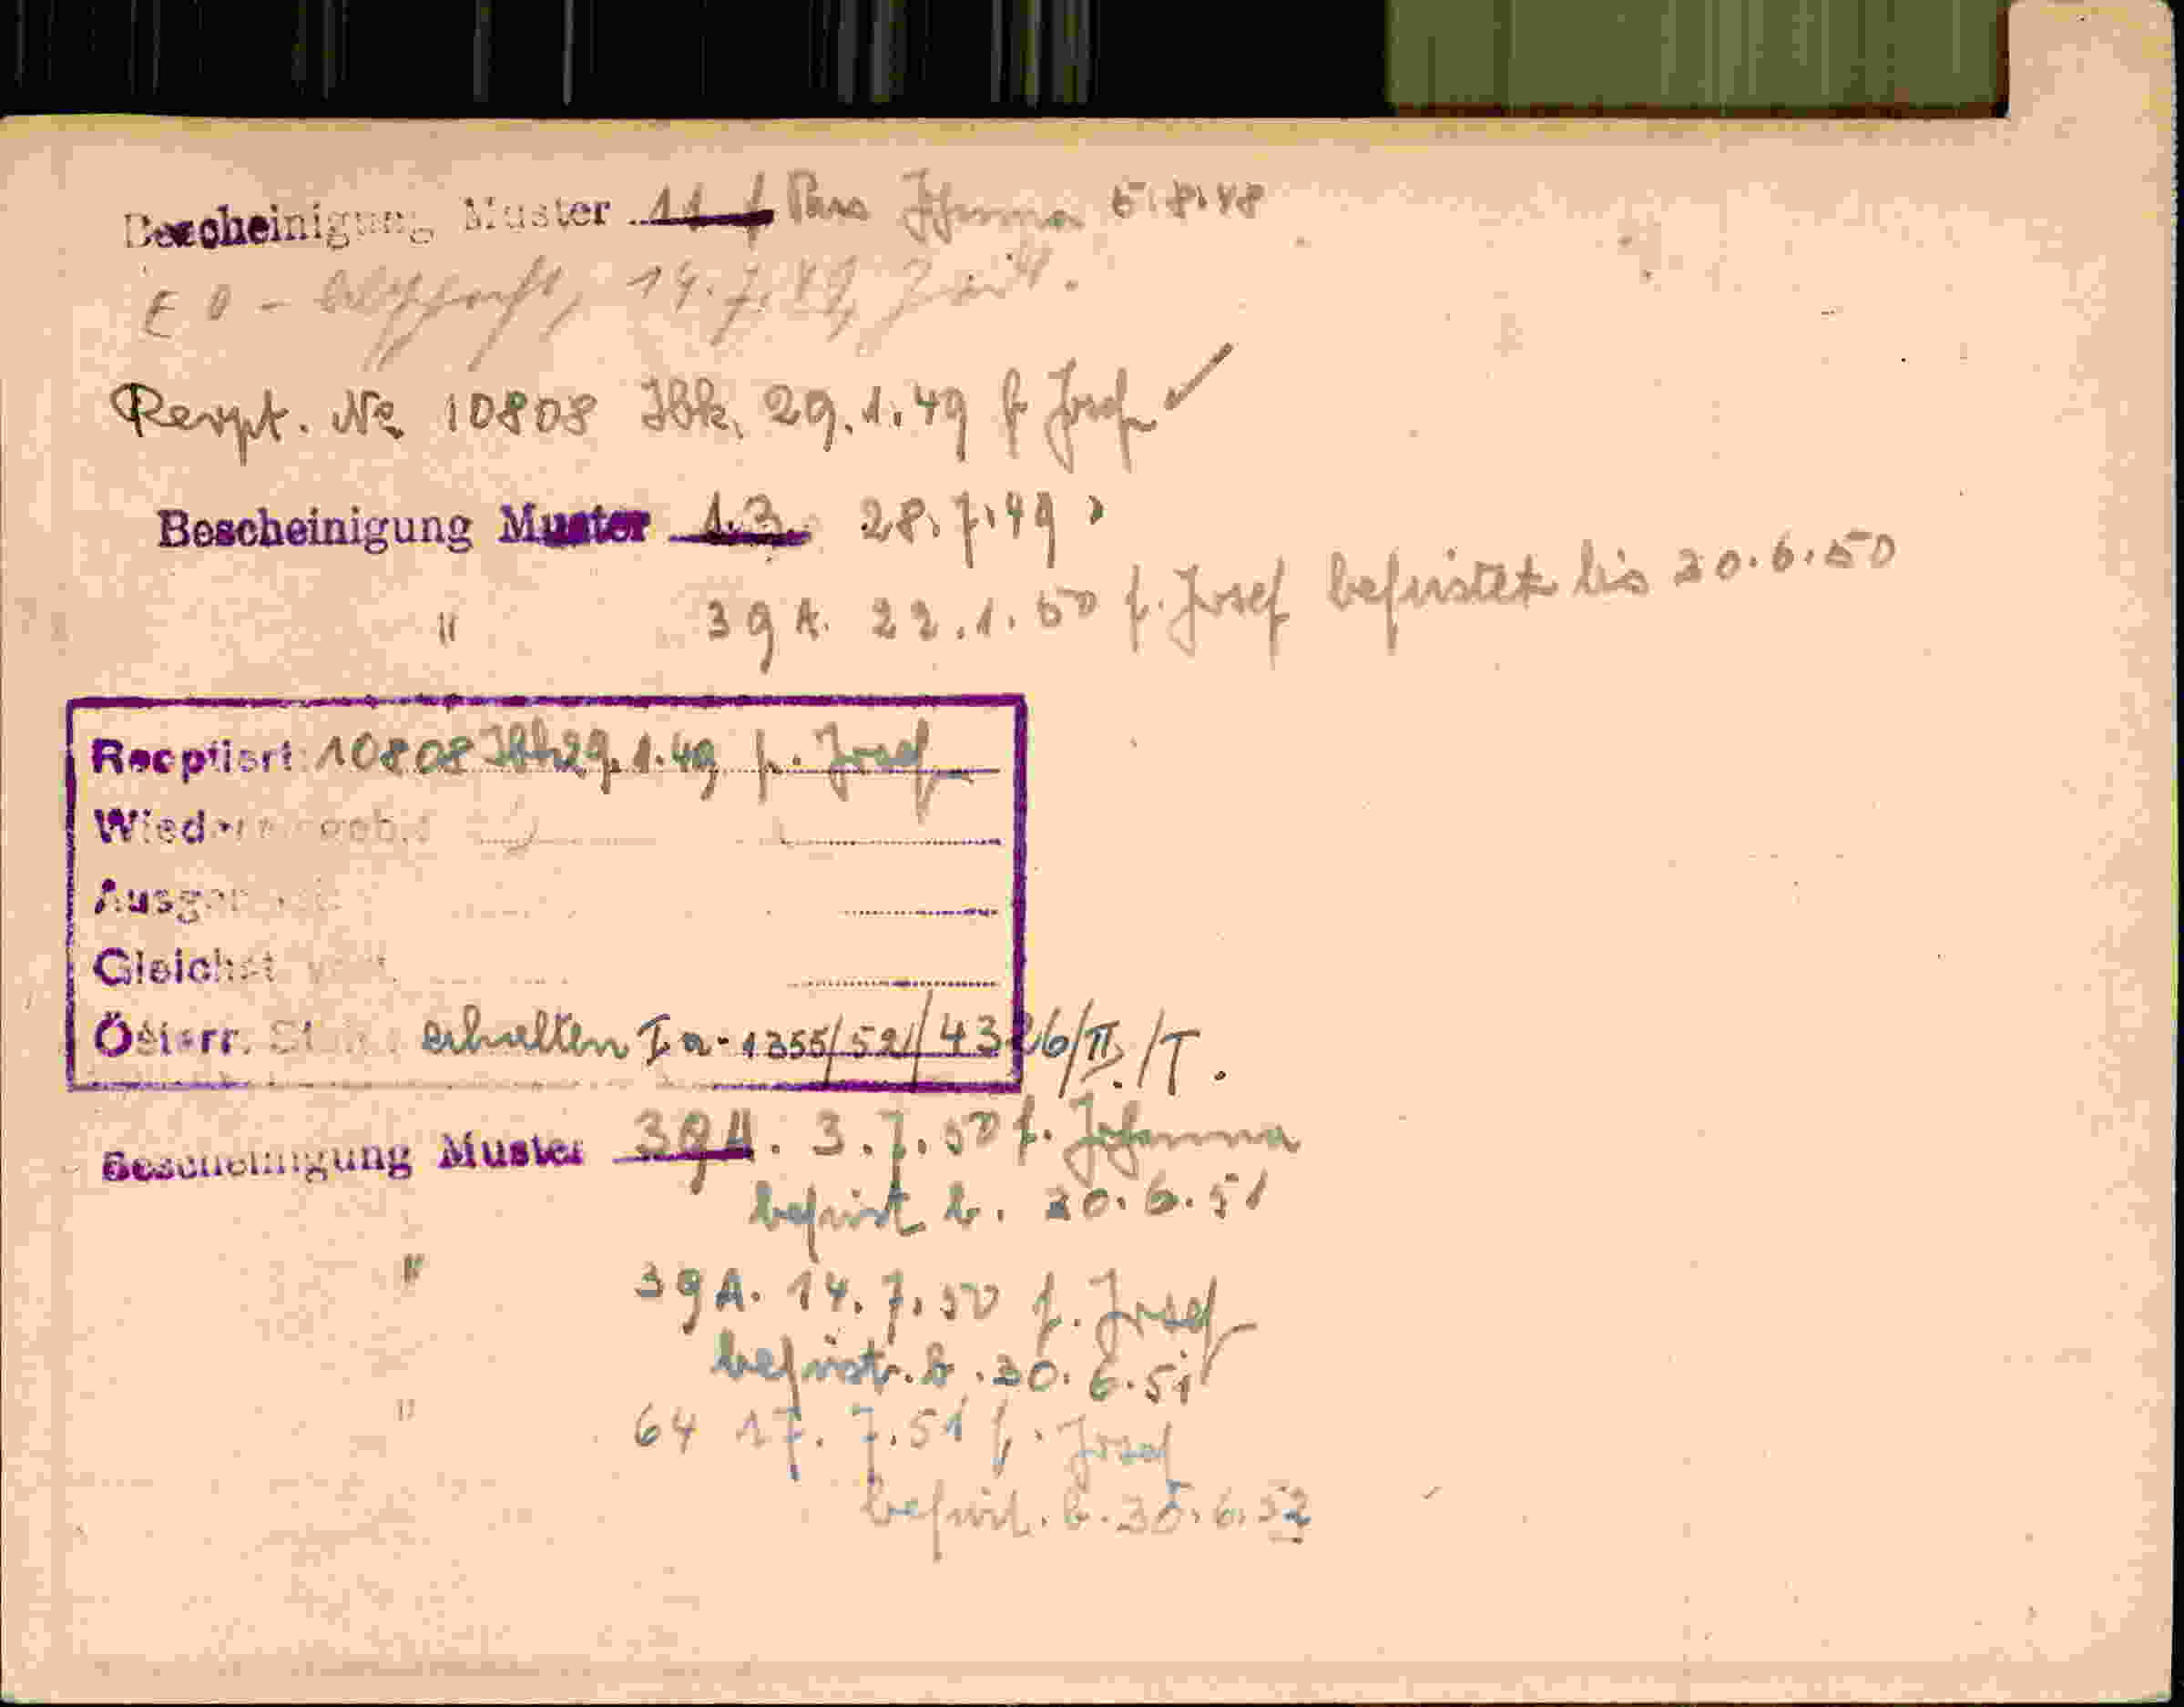 Bescheinigung Muster 11 f Johanna 5.8.48
E O - 14.7.49
Rexpt. No 10808 Jbk. 29.1.49 f Josef ✓
Bescheinigung Muster 13 28.7.49
" 39 A. 22.1.50 f. Josef befristet bis 30.6.50
Reoptiert: 10808 Jbk 29.1.49 f. Josef
Wieder
Ausge
Gleichst
Österr. St. erhalten Ia-1355/52//4326/II./T.
Bescheinigung Muster 39A. 3.7.50 f. Johanna
befrist. b. 30.6.51
" 39A. 14.7.50 f. Josef
befrist. b. 30.6.51
" 64 17.7.51 f. Josef
befrist. b. 30.6.52